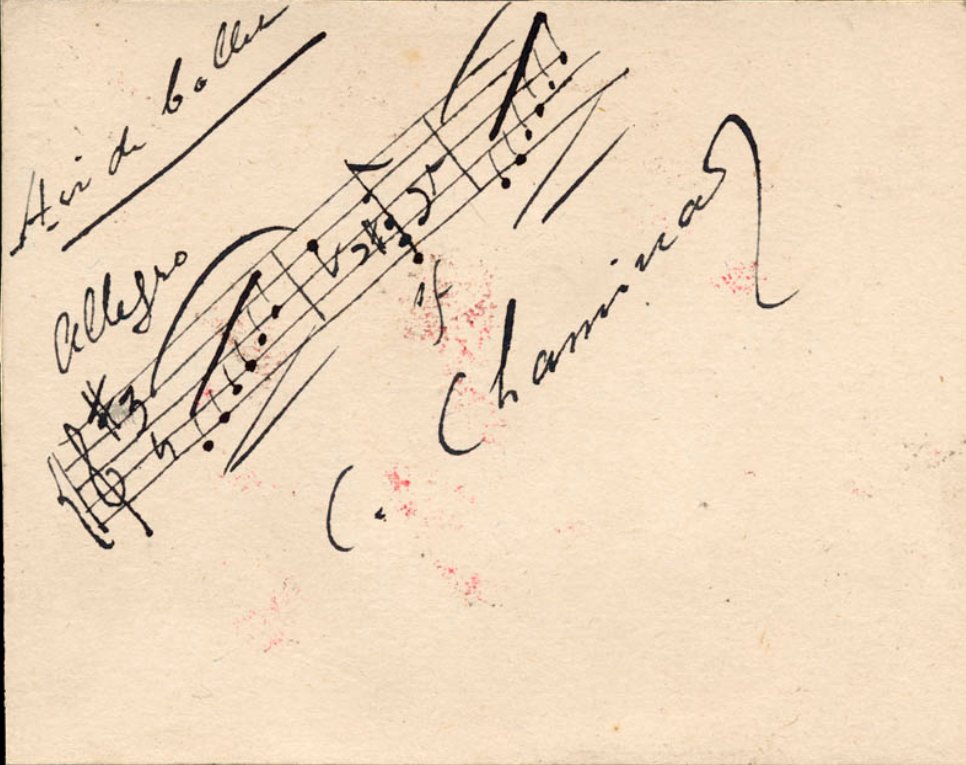 Air de ballet
Allegro
3
C. Chaminade